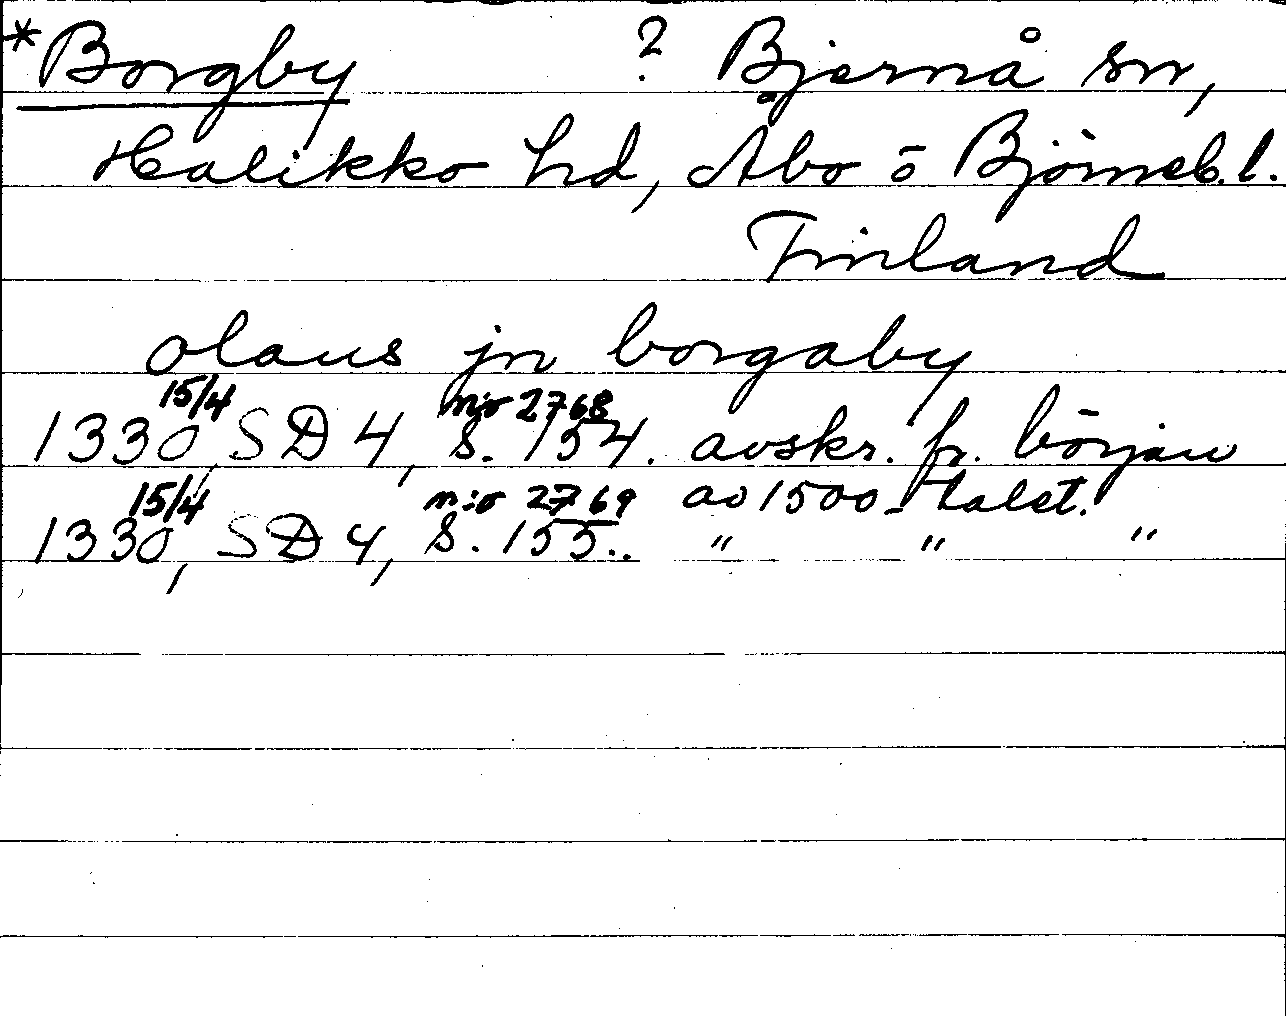 *Borgby ? Bjernå sn,
Halikko hd, Åbo o Björneb. l.
Finland
olaus jn borgaby
1330 15/4, SD 4, n:o 2768 s. 154. avskr. fr. början
av 1500-talet.
1330 15/4, SD 4, n:o 2769 s. 155.. " " "